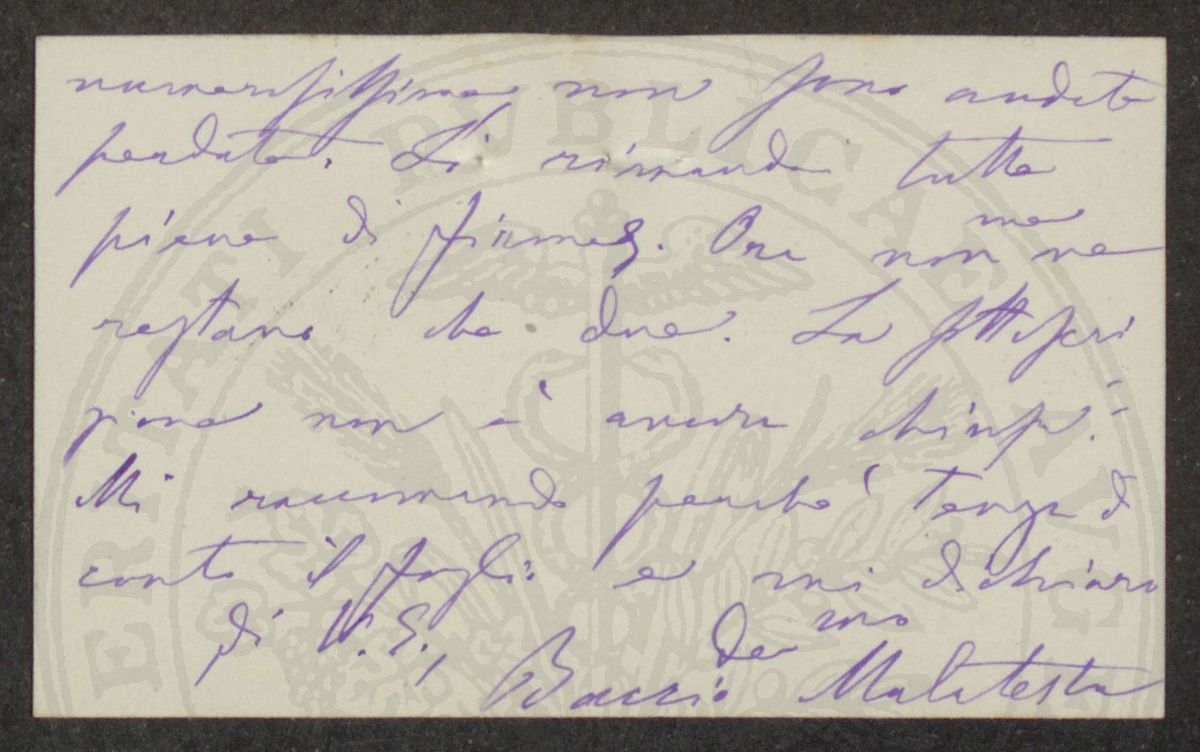 numerosissime non sono andate
perdute. Si rimandi tutte
piene di firme. Ora non me ne
restano che due. La sottoscri
zione non è ancora chiusa.
Mi raccomando perché tenga di
conto il foglio e mi dichiaro
di V. S., Dev mo
Baccio Malatesta